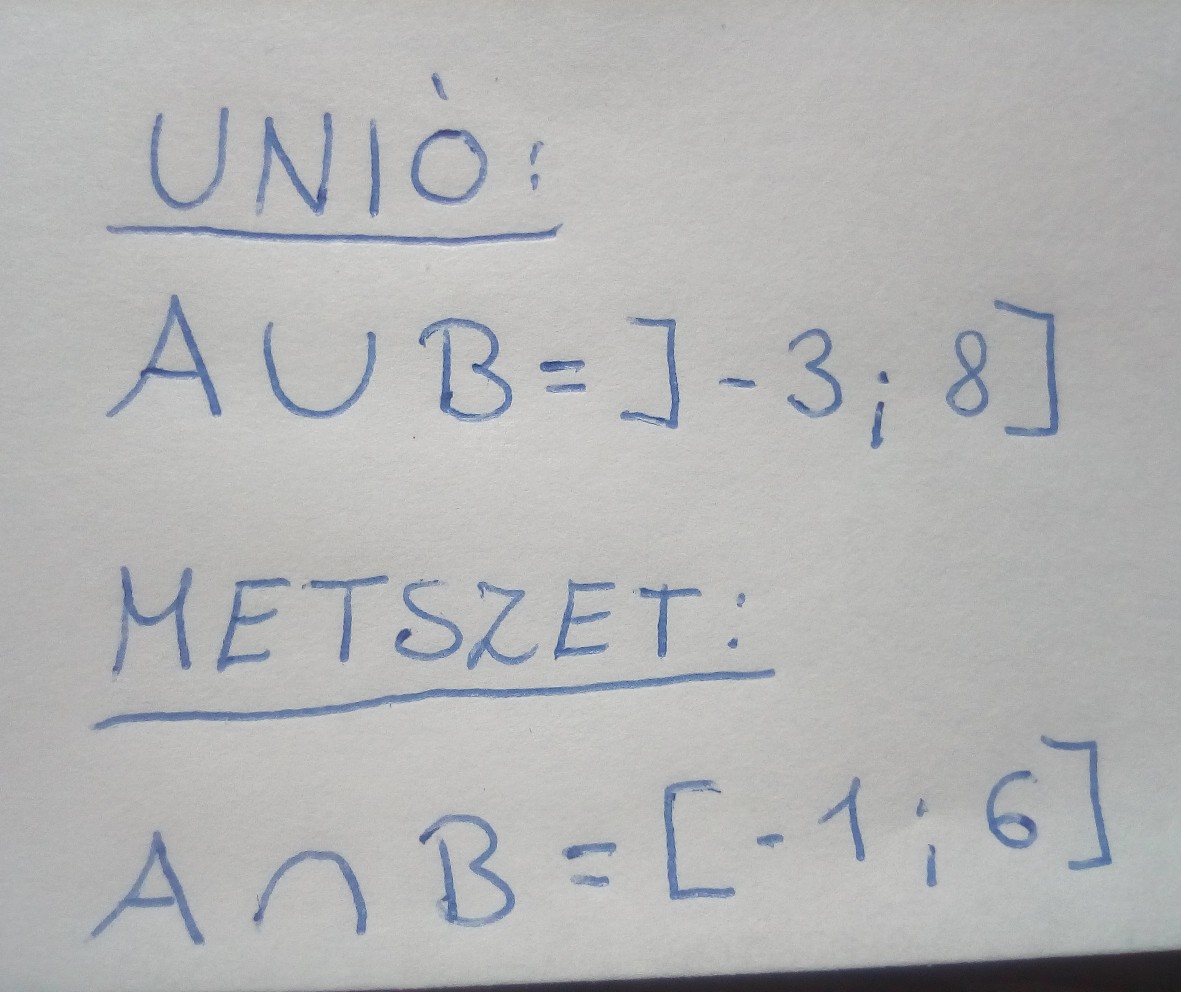 UNIÒ:
A ∪ B = ] - 3 ; 8 ]
METSZET:
A ∩ B = [ - 1 ; 6 ]